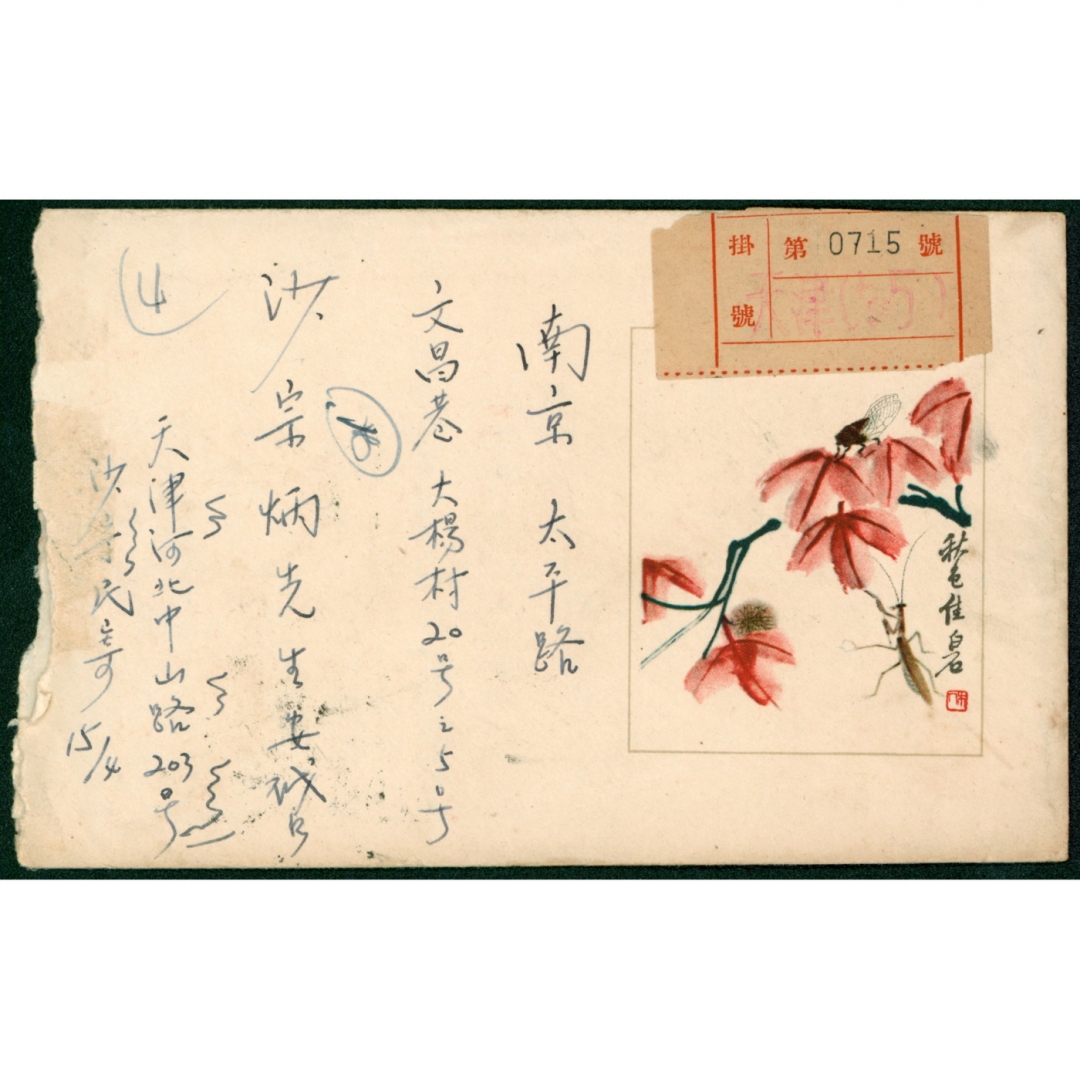 掛號
第 0715 號
天津(5)
秋色佳 白石
南京 太平路
文昌巷 大楊村20号之5号
沙宗炳先生安啟
天津河北中山路203号
沙 民寄
15/4
4